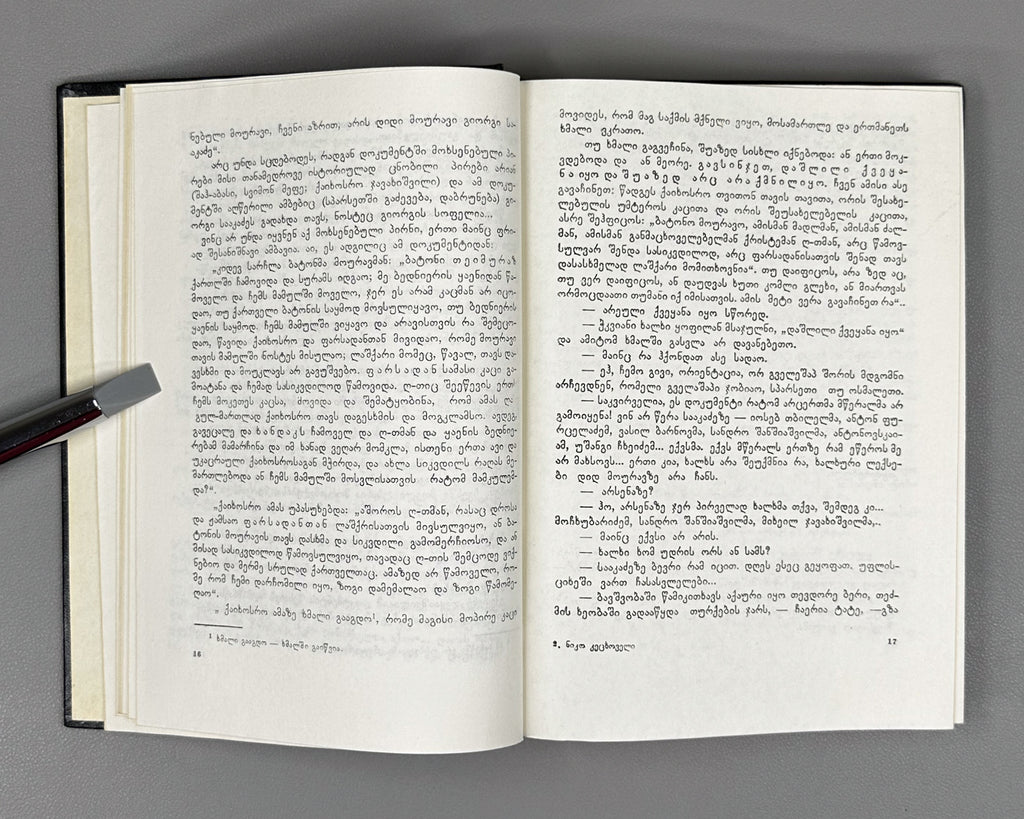 ნებული მოურავი, ჩვენი აზრით, არის დიდი მოურავი გიორგი სა-
აკაძე“.
არც უნდა სცდებოდეს, რადგან დოკუმენტში მოხსენებული პი-
რები მისი თანამედროვე ისტორიულად ცნობილი პირები არიან
(შაჰ-აბასი, სვიმონ მეფე; ქაიხოსრო ჯავახიშვილი) და ამ დოკუ-
მენტში აღწერილი ამბებიც (სპარსეთში გაძევება, დაბრუნება) გი-
ორგი სააკაძეს გადახდა თავს, ნოსტეც გიორგის სოფელია...
ვინც არ უნდა იყვნენ აქ მოხსენებული პირნი, ერთი მაინც ფრი-
ად შესანიშნავი ამბავია. აი, ეს ადგილიც ამ დოკუმენტიდან:
„კიდევ სარჩლა ბატონმა მოურავმან: „ბატონი თეიმურაზ
ქართლში ჩამოვიდა და სურამს იდგაო; მე ბედნიერის ყაენიდან წა-
მოველო და ჩემს მამულში მოველო, ჯერ ეს არამ კაცმან არ იცო-
დაო, თუ ქართველი ბატონის საყმოდ მოვსულიყავო, თუ ბედნიერის
ყაენის საყმოდ. ჩემს მამულში ვიყავო და არავისთვის რა შემეცო-
დაო, წავიდა ქაიხოსრო და ფარსადანთან მივიდაო, რომე მოურავი
თავის მამულში ნოსტეს მისულაო; ლაშქარი მომეც, წავალ, თავს და-
ვესხმი და მოუკლავს არ გავუშვებო. ფარსადან სამასი კაცი გა-
მოატანა და ჩემად სასიკვდილოდ წამოვიდა. ღ-თიც შეეწევის ერთ
ჩემს მოკეთეს კაცსა, მოვიდა და შემატყობინა, რომ ამას ღა-
გულ-მართლად ქაიხოსრო თავს დაგესხმის და მოგკლამსო. ავდეგ,
გავეცალე და ხანდაკს ჩამოველ და ღ-თმან და ყაენის ბედნიე-
რებამ მამარჩინა და იმ ხანად ვეღარ მომკლა, ისთენი ერთა ავი და
უკაცრაული ქაიხოსროსაგან მჭირდა, და ახლა სიკვდილს რაღას მე-
მართლებოდა ან ჩემს მამულში მოსვლისათვის რატომ მამკულემ-
და?“.
„ქაიხოსრო ამას უპასუხებდა: „აშოროს ღ-თმან, რასაც დროსა
და ჟამსაო ფარსადანთან ლაშქრისათვის მივსულვიყო, ან ბა-
ტონის მოურავის თავს დასხმა და სიკვდილი გამომერჩიოსო, და ან
მისად სასიკვდილოდ წამოვსულვიყო, თავადაც ღ-თის შემცოდე ვიქ-
ნებიო და მერმე სრულად ქართველთაც. ამაზედ არ წამოველო, რო-
მე რომ ჩემი დარჩომილი იყო, ზოგი დამემალაო და ზოგი წამომე-
ღაო“.
„ ქაიხოსრო ამაზე ხმალი გააგდო¹, რომე მაგისი მოპირე კაცი
¹ ხმალი გააგდო — ხმალში გაიწვია.
16
მოვიდეს, რომ მაგ საქმის მქნელი ვიყო, მოსამართლე და ერთმანეთს
ხმალი ვკრათო.
თუ ხმალი გაგვეჩინა, შუაზედ სისხლი იქნებოდა: ან ერთი მოკ-
ვდებოდა და ან მეორე. გავსინჯეთ, დაშლილი ქვეყა-
ნა იყო და შუაზედ არც არა ქმნილიყო. ჩვენ ამისი ასე
გავაჩინეთ: წადგეს ქაიხოსრო თვითონ თავის თავითა, ორის შესახე-
ლებულის უმტეროს კაცითა და ორის შეუსახელებელის კაცითა,
ასრე შეჰფიცოს: „ბატონო მოურავო, ამისმან მადლმან, ამისმან ძალ-
მან, ამისმან განმაცხოველებელმან ქრისტემან ღ-თმან, არც წამოვ-
სულვარ შენდა სასიკვდილოდ, არც ფარსადანისათვის შენად თავს
დასასხმელად ლაშქარი მომითხოვნია“. თუ დაიფიცოს, არა ზედ აც,
თუ ვერ დაიფიცოს, ან დაუდვას ხუთი კომლი გლეხი, ან მიართვას
ორმოცდაათი თუმანი იქ იმისათვის. ამის მეტი ვერა გავაჩინეთ რა“..
— არეული ქვეყანა იყო სწორედ.
— ჰკვიანი ხალხი ყოფილან მსაჯულნი, „დაშლილი ქვეყანა იყო“
და ამიტომ ხმალში გასვლა არ დავანებეთო.
— მაინც რა ჰქონდათ ასე სადაო.
— ეჰ, ჩემო გივი, ორიენტაცია, ორ გველეშაპ შორის მდგომნი
არჩევდნენ, რომელი გველაშაპი ჯობიაო, სპარსეთი თუ ოსმალეთი.
— საკვირველია, ეს დოკუმენტი რატომ არცერთმა მწერალმა არ
გამოიყენა! ვინ არ წერა სააკაძეზე — იოსებ თბილელმა, ანტონ ფუ-
რცელაძემ, ვასილ ბარნოვმა, სანდრო შანშიაშვილმა, ანტონოვსკაი-
ამ, უშანგი ჩხეიძემ... ექვსმა. ექვს მწერალს ერთზე რამ ეწეროს მე
არ მახსოვს... ერთი კია, ხალხს არა შეუქმნია რა, ხალხური ლექსე-
ბი დიდ მოურავზე არა ჩანს.
— არსენაზე?
— ჰო, არსენაზე ჯერ პირველად ხალხმა თქვა, შემდეგ კი...
მოჩხუბარიძემ, სანდრო შანშიაშვილმა, მიხეილ ჯავახიშვილმა,..
— მაინც ექვსი არ არის.
— ხალხი ხომ უდრის ორს ან სამს?
— სააკაძეზე ბევრი რამ იცით. დღეს ესეც გეყოფათ. უფლის-
ციხეში ვართ ჩასასვლელები...
— ბავშვობაში წამიკითხავს აქაური იყო თევდორე ბერი, თეძ-
მის ხეობაში გადააწყდა თურქების ჯარს, — ჩაერია ტატე, —გზა
2. ნიკო კეცხოველი
17